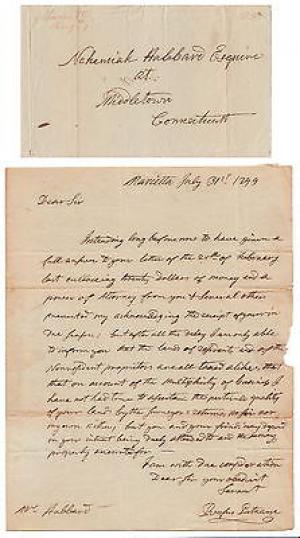 Nehemiah Hubbard Esquire
at
Middletown
Connecticutt
Marietta July 31st. 1799
Dear Sir
Intending long before now to have given a
full answer to your letter of the 20th of February
last enclosing twenty dollars of money and a
power of Attorney from you & several others
prevented my acknowledging the receipt of your in
due season: but after all the delay I am only able
to inform you that the lands of and of other
Nonresident proprietors are all taxed alike, that
that on account of the multiplicity of business I
have not had time to ascertain the particular quality
of your land by the surveyors returns nor
my own but you and your friends may
in your interest being duly attended to and the money
properly accounted for —
I am with due consideration
Dear Sir your obedient
Servant
Mr. Hubbard Rufus Putnam